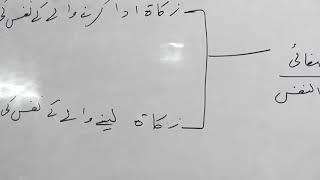 زکاۃ ادا کرنے والے کے نفس کی
صفائی
النفس
زکاۃ لینے والے کے نفس کی